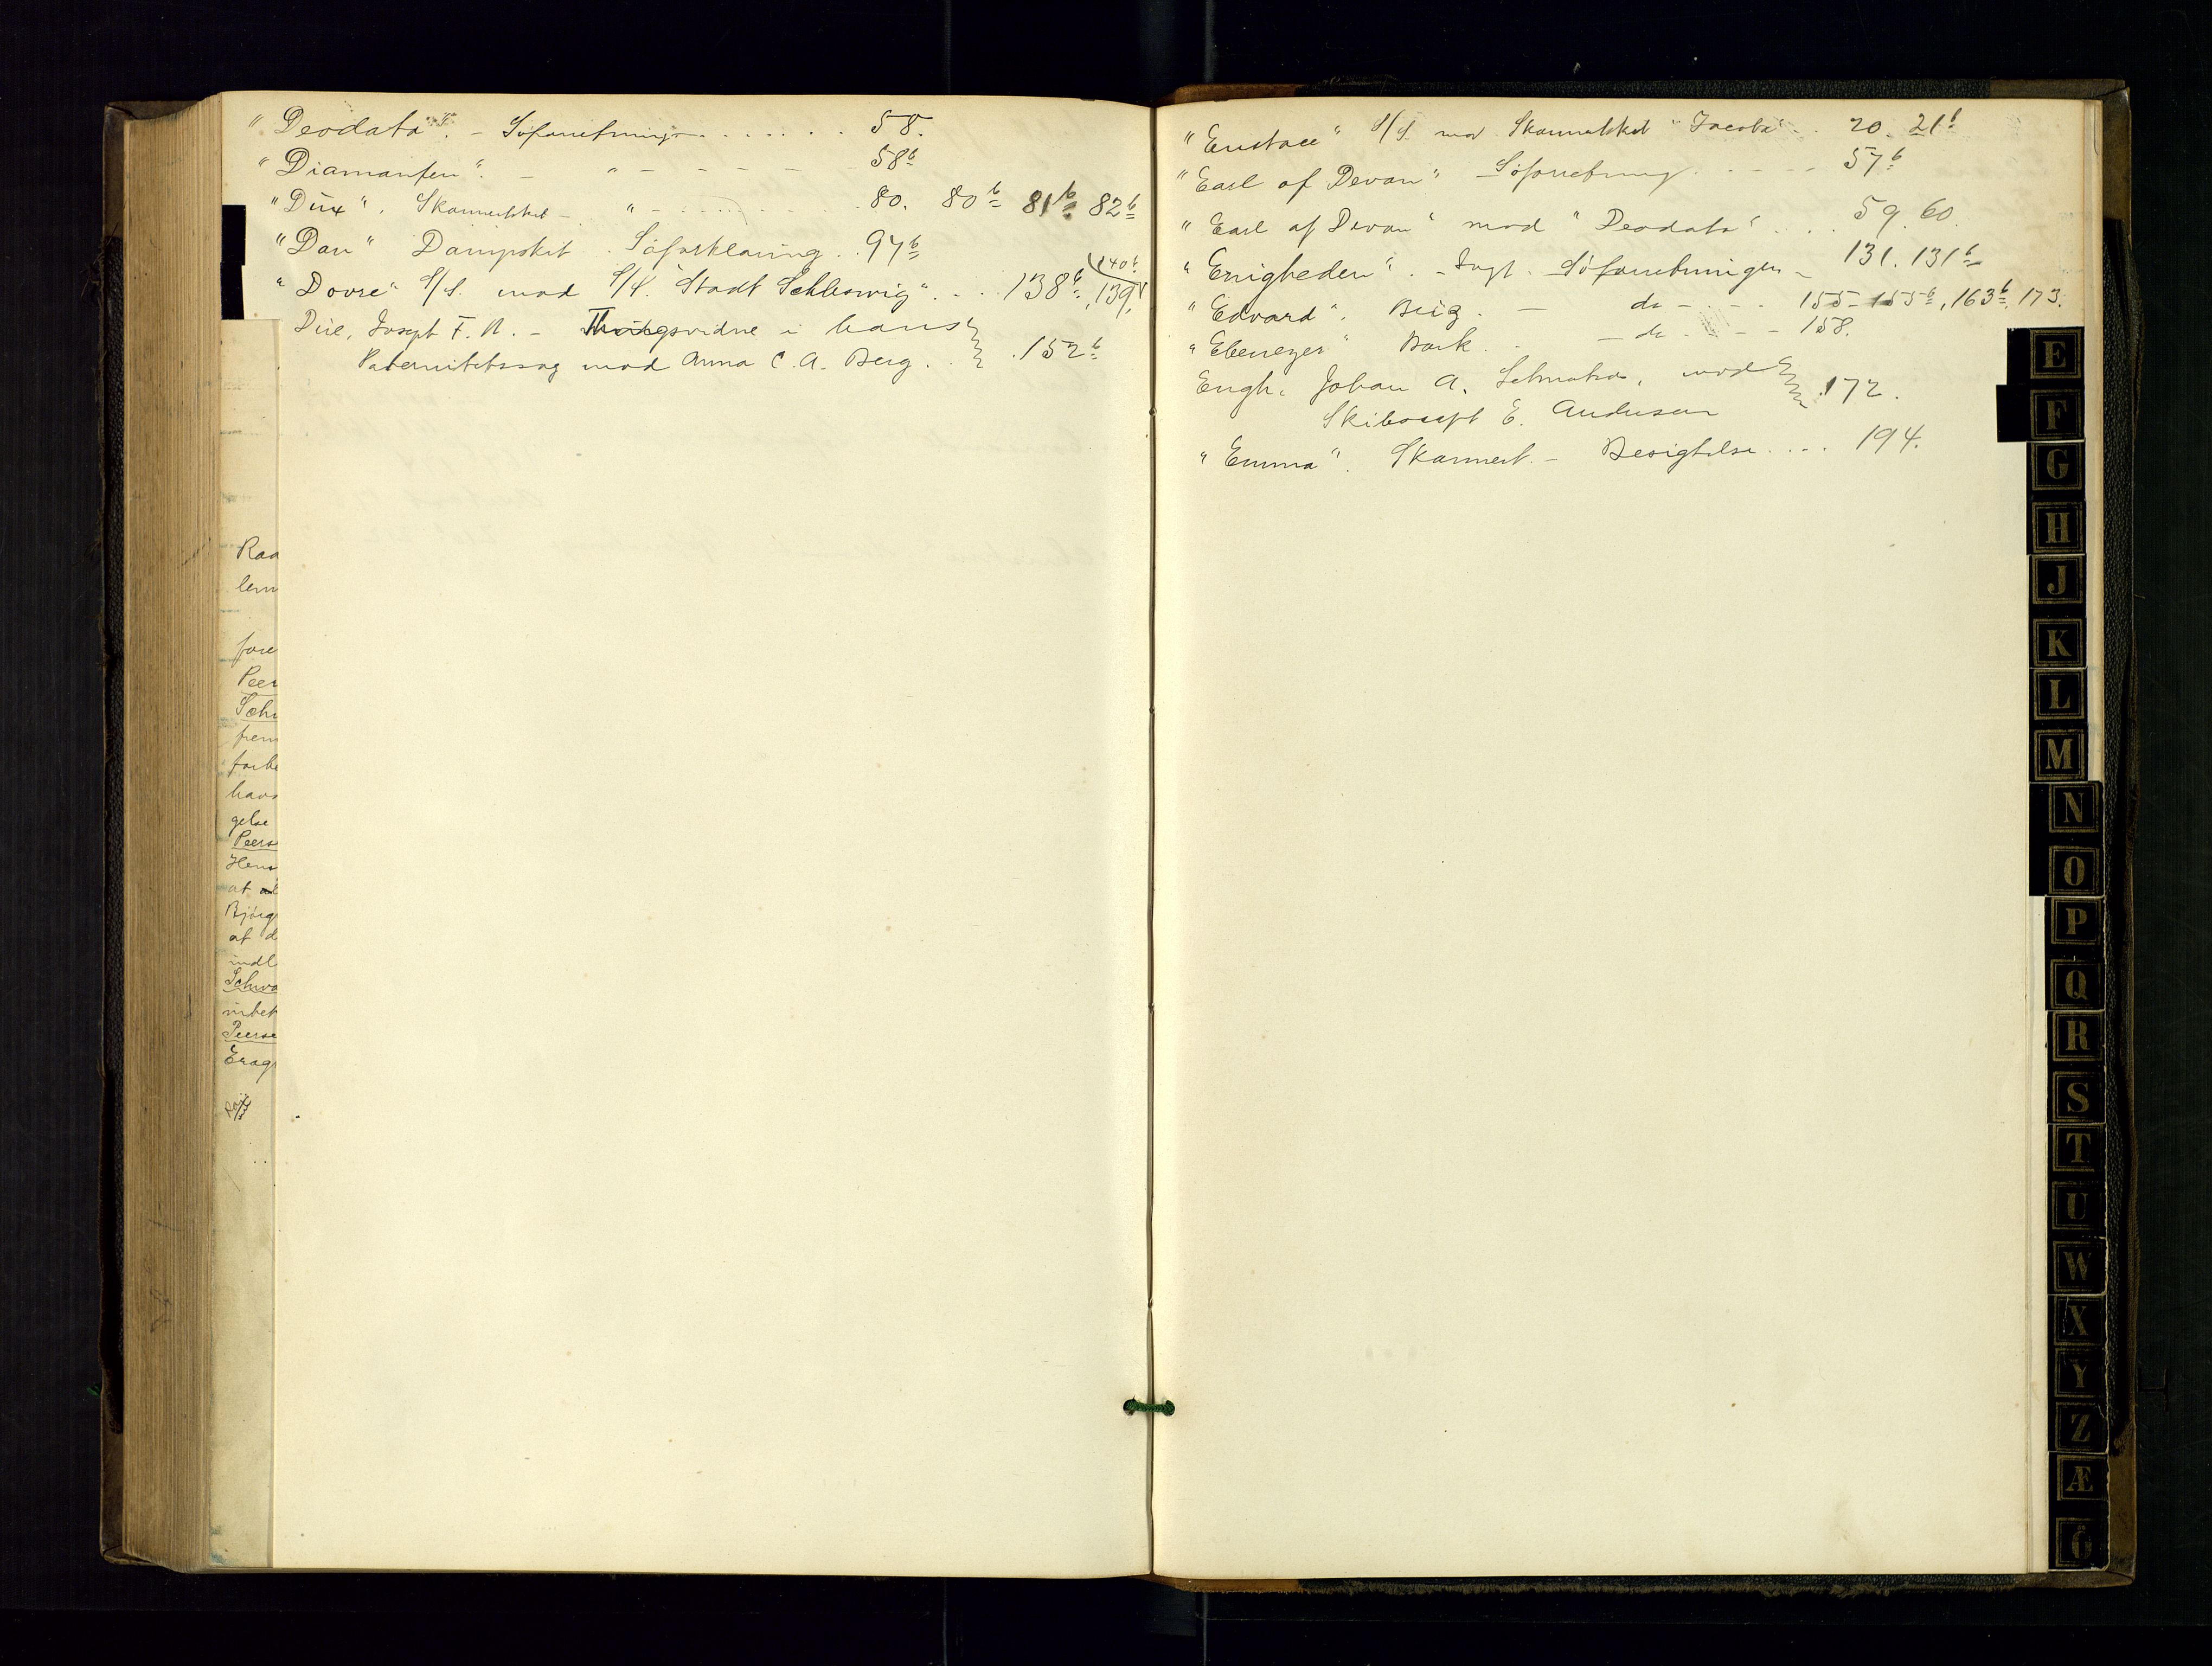 "Deodata". - Söforretning . . . . . . 58.
"Diamanten". - " - - - - - 58b
"Dux", Skonnertskib - " - . . . . . 80. 80b 81b 82b
"Dan" Dampskib. Söforklaring . . 97b
(140b.
"Dovre" S/S. mod S/S. "Stadt Schleswig". . . . 138b, 139,
Due, Joseph F. N. - Thingsvidne i hans
Paternitetssag mod Anna C. A. Berg . . . 152b
Raa
lem
fore
Peer
Schw
frem
forhe
havs
gelse
Peers
Hens
at al
Björg
at d
indl
Schwa
Peerse
"Eustace" S/S. mod Skonnertskib "Jacoba" . . 20. 21b
"Earl of Devon" - Söforretning . . - - - - 57b
"Earl of Devon" mod "Deodata" . . . 59. 60
"Enigheden". - Jagt. - Söforretningen - 131. 131b
"Edvard". Brig. - do - . - - 155- 155b, 163b, 173.
"Ebenezer" Bark. - - do . - - - 158.
Engh. Johan A. mod
172.
Skibs E. Andersen
"Emma". Skonnert. - Besigtelse . . . . 194.
E
F
G
H
J
K
L
M
N
O
P
Q
R
S
T
U
W
X
Y
Z
Æ
Ö